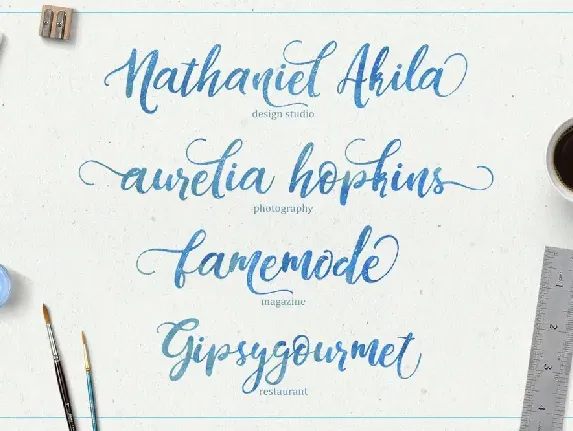 Nathaniel Akila
design studio
aurelia hopkins
photography
famemode
magazine
Gipsygourmet
restaurant
1
2
3